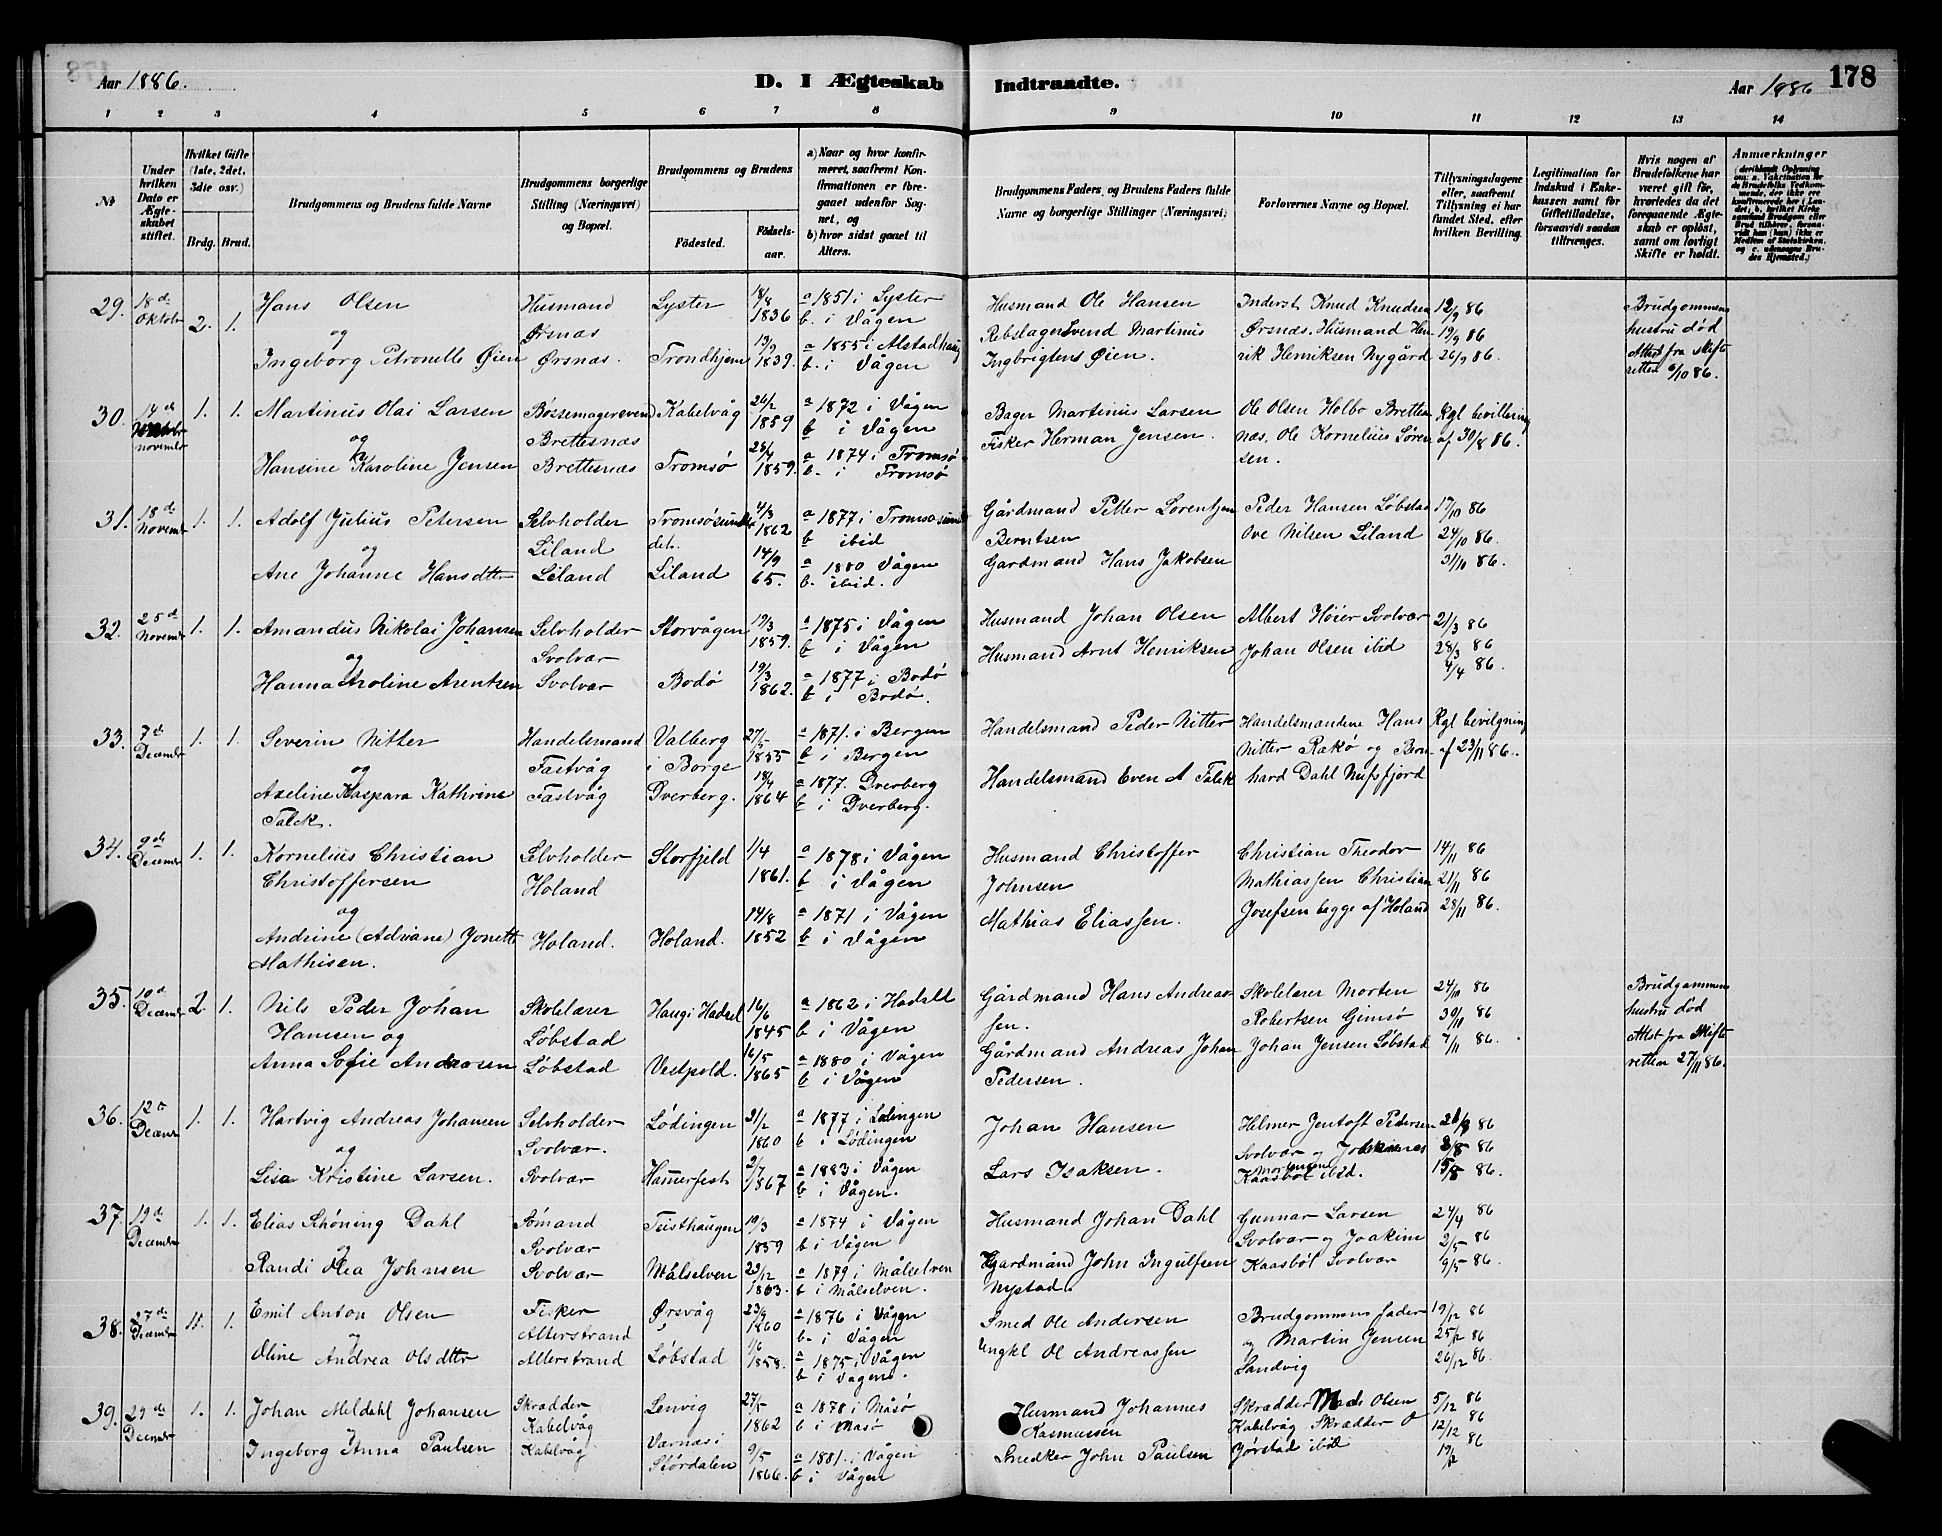 Aar 1886.
D. I Ægteskab Indtraadte.
Aar 1886
178
1 2 3 4 5 6 7 8 9 10 11 12 13 14
No
Under hvilken Dato er Ægteskabet stiftet.
Hvilket Gifte (1ste, 2det, 3die osv.)
Brdg. Brud.
Brudgommens og Brudens fulde Navne
Brudgommens borgerlige Stilling (Næringsvei) og Bopæl.
Brudgommens og Brudens
Fødested.
Fødselsaar.
a) Naar og hvor konfirmeret, saafremt Konfirmationen er foregaaet udenfor Sognet, og
b) hvor sidst gaaet til Alters.
Brudgommens Faders og Brudens Faders fulde Navne og borgerlige Stillinger (Næringsvei)
Forlovernes Navne og Bopæl.
Tillysningsdagene eller, saafremt Tillysning ei har fundet Sted, efter hvilken Bevilling.
Legitimation for Indskud i Enkekassen samt for Giftetilladelse, forsaavidt saadan tiltrænges.
Hvis nogen af Brudefolkene har været gift før, hvorledes da det foregaaende Ægteskab er opløst, samt om lovligt Skifte er holdt.
Anmærkninger
29. 18de Oktobr 2. 1. Hans Olsen Husmand Ørsnæs Lyster 18/8 1836 a 1851 i Lyster b. i Vågen Husmand Ole Hansen Inderst Knud Knudsen 12/9 86 Brudgommens hustru død
og
Ingeborg Petronelle Øien Ørsnæs. Trondhjem 13/9 1839. a 1855 i Alstadhaug b. i Vågen Rebslager Svend Martinus Ingbrigtens Øien. Ørsnæs. Husmand Henrik Henriksen Nygård 19/9 86 26/9 86. Attest fra skifteretten 6/10 86.
30. 14de novembr 1. 1. Martinus Olai Larsen Bøssemagersvend Brettesnæs Kabelvåg 26/2 1859 a 1872 i Vågen b i Vågen Bager Martinus Larsen Ole Olsen Holbo Brettesnæs. Ole Kornelius Sørensen. Kgl bevillning af 30/8 86.
og
Hansine Karoline Jensen Brettesnæs Tromsø 28/4 1859. a 1874 i Tromsø b. i Tromsø Fisker Herman Jensen.
31. 18de Novembr 1. 1. Adolf Julius Petersen Selvholder Liland Tromsøsundet. 4/3 1862 a 1877 i Tromsøsund b ibid Gårdmand Petter Lorentsen Berntsen Peder Hansen Løbstad 17/10 86
og
Ane Johanne Hansdtter Liland Liland 14/9 65. a 1880 Vågen b. ibid. Gårdmand Hans Jakobsen Ove Nilsen Liland 24/10 86. 31/10 86.
32. 25de Novembr 1. 1. Amandus Nikolai Johansen Selvholder Svolvær Storvågen 19/3 1859. a 1875 i Vågen b i Vågen Husmand Johan Olsen Albert Høier Svolvær 21/3 86
og
Hanna Aroline Arentsen Svolvær Bodø 19/3 1862. a 1877 i Bodø b i Bodø. Husmand Arnt Henriksen Johan Olsen ibid 28/3 86 4/4 86.
33. 7de Decembr 1. 1. Severin Nitter Handelsmand Fastvåg Valberg i Borge 27/5 1855 a 1871. i Bergen b i Bergen Handelsmand Peder Nitter Handelsmændene Hans Nitter Rakø og Bernhard Dahl Nusfjord Kgl bevilgning af 23/11 86.
og
Axeline Kaspara Kathrine Falck. Fastvåg Dverberg. 18/4 1864 a 1877. Dverberg b i Dverberg. Handelsmand Even A Falck
34. 9de Decembr 1. 1. Kornelius Christian Christoffersen Selvholder Holand Storfjeld 1/4 1861. a 1878 i Vågen b i Vågen Husmand Christoffer Johnsen Christian Theodor Mathiassen Christian Josefsen begge af Holand 14/11 86 21/11 86 28/11 86.
og
Andrine (Adriane) Jonette Mathisen. Holand. Holand. 14/8 1852 a 1871 i Vågen b i Vågen Mathias Eliassen.
35. 10de Decembr 2. 1. Nils Peder Johan Hansen og Skolelærer Løbstad Haug i Hadsel 16/6 1845 a 1862 i Hadsel b i Vågen Gårdmand Hans Andreassen. Skolelærer Morten Robertsen Gimsø 24/10 86 30/10 86 Brudgommens hustru død Attest fra Skifteretten 27/11 86.
Anna Sofie Andreasen Løbstad Vestpold. 16/5 1865 a 1880 i Vågen b i Vågen Gårdmand Andreas Johan Pedersen. Johan Jensen Løbstad 7/11 86.
36. 12te Decembr 1. 1. Hartvig Andreas Johansen Selvholder Svolvær. Lødingen 21/2 1860 a 1877 i Lødingen b i Lødingen Johan Hansen Helmer Jentoft Pedersen Svolvær og 86
og
Lisa Kristine Larsen. Svolvær Hammerfest 2/7 1867 a 1883 i Vågen b i Vågen. Lars Isaksen. Mortensen Kaasbøl ibid. 86 15/8 86.
37. 19de Decembr 1. 1. Elias Schøning Dahl Sømand Svolvær Teisthaugen 19/3 1859 a 1874 i Vågen b i Vågen Husmand Johan Dahl Gunnar Larsen Svolvær og Joakim Kaasbøl Svolvær 24/4 86
og
Randi Olea Johnsen Svolvær Målselven 23/12 1863. a 1879 i Målselven b i Målselven. Gardmånd John Ingulfsen Nystad. 2/5 86 9/5 86.
38. 27de Decembr 1. 1. Emil Anton Olsen Fisker Alterstrand Ørsvåg 23/9 1860 a 1876 i Vågen b- i Vågen Smed Ole Andersen Brudgommens fader og Martin Jensen Sandvig 19/12 86
og
Oline Andrea Olsdtter Alterstrand Løbstad 1/6 1858. a 1875 i Vågen b i Vågen. Ungkl Ol Andreassen 25/12 86 26/12 86.
39. 29de Decembr 1. 1. Johan Meldahl Johansen Skrædder Kabelvåg Lenvig 27/5 1862 a 1878 i Måsø b i Måsø Husmand Johannes Rasmussen Skrædder Mads Olsen Kabelvåg Skrædder O Jørstad ibid 5/12 86
Ingeborg Anna Paulsen Kabelvåg Værnæs i Størdalen 9/5 1866. a 1881. i Vågen b i Vågen Snedker John Paulsen 12/12 86 19/12 86